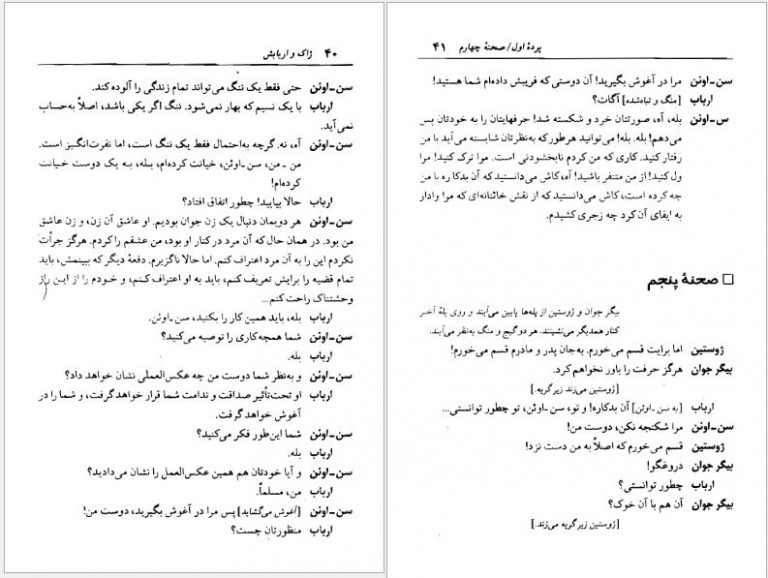 ۴۰ ژاک و اربابش
سن-اوئن حتی فقط یک ننگ می‌تواند تمام زندگی را آلوده کند.
ارباب با یک نسیم که بهار نمی‌شود. ننگ اگر یکی باشد، اصلاً به‌حساب
نمی‌آید.
سن-اوئن آه، نه. گرچه به‌احتمال فقط یک ننگ است، اما نفرت‌انگیز است.
من - من، سن-اوئن، خیانت کرده‌ام، بله، به یک دوست خیانت
کرده‌ام!
ارباب حالا بیایید! چطور اتفاق افتاد؟
سن-اوئن هر دویمان دنبال یک زن جوان بودیم. او عاشق آن زن، و زن عاشق
من بود. در همان حال که آن مرد در کنار او بود، من عشقم را کردم. هرگز جرأت
نکردم این را به آن مرد اعتراف کنم. اما حالا ناگزیرم. دفعهٔ دیگر که ببینمش، باید
تمام قضیه را برایش تعریف کنم، باید به او اعتراف کنم، و خودم را از این راز
وحشتناک راحت کنم...
ارباب بله، باید همین کار را بکنید، سن-اوئن.
سن-اوئن شما همچه‌کاری را توصیه می‌کنید؟
ارباب بله.
سن-اوئن و به‌نظر شما دوست من چه عکس‌العملی نشان خواهد داد؟
ارباب او تحت‌تأثیر صداقت و ندامت شما قرار خواهدگرفت، و شما را در
آغوش خواهد گرفت.
سن-اوئن شما این‌طور فکر می‌کنید؟
ارباب بله.
سن-اوئن و آیا خودتان هم همین عکس‌العمل را نشان می‌دادید؟
ارباب من، مسلماً.
سن-اوئن [آغوش می‌گشاید] پس مرا در آغوش بگیرید، دوست من!
ارباب منظورتان چست؟
پردهٔ اول/ صحنهٔ چهارم ۴۱
سن-اوئن مرا در آغوش بگیرید! آن دوستی که فریبش داده‌ام شما هستید!
ارباب [منگ و تباه‌شده] آگات؟
س-اوئن بله، آه، صورتتان خرد و شکسته شد! حرفهایتان را به خودتان پس
می‌دهم! بله. بله! می‌توانید هرطور که به‌نظرتان شایسته می‌آید با من
رفتار کنید. کاری که من کردم نابخشودنی است. مرا ترک کنید! مرا
ول کنید! از من متنفر باشید! آه، کاش می‌دانستید که آن بدکاره با من
چه کرده است، کاش می‌دانستید که از نقش خائنانه‌ای که مرا وادار
به ایفای آن کرد چه زجری کشیدم.
صحنهٔ پنجم
بیگر جوان و ژوستین از پله‌ها پایین می‌آیند و روی پلهٔ آخر
کنار همدیگر می‌نشینند. هر دو گیج و منگ به‌نظر می‌آیند.
ژوستین اما برایت قسم می‌خورم. به‌جان پدر و مادرم قسم می‌خورم!
بیگر جوان هرگز حرفت را باور نخواهم کرد.
[ژوستین می‌زند زیر گریه.]
ارباب [به سن-اوئن] آن بدکاره! و تو، سن-اوئن، تو چطور توانستی...
سن-اوئن مرا شکنجه نکن، دوست من!
ژوستین قسم می‌خورم که اصلاً به من دست نزد!
بیگر جوان دروغگو!
ارباب چطور توانستی؟
بیگر جوان آن هم با آن خوک؟
[ژوستین زیر گریه می‌زند.]